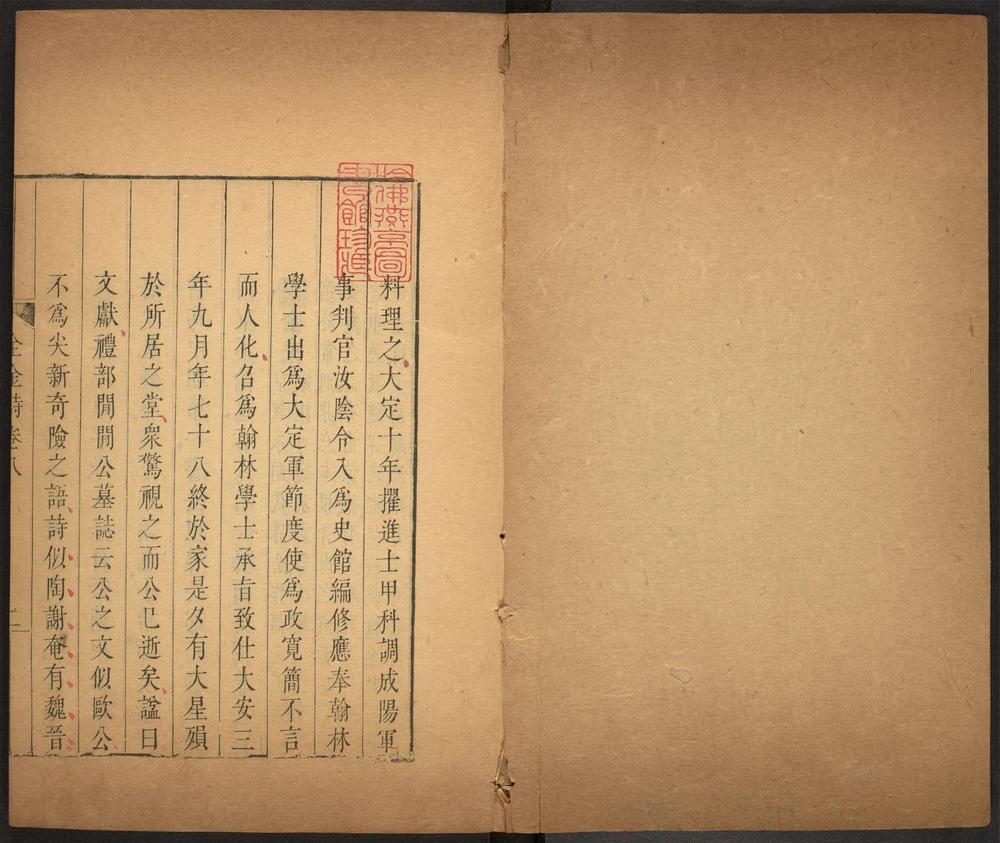 料理之大定十年擢進士甲科調成陽軍
事判官汝陰令入爲史館編修應奉翰林
學士出爲大定軍節度使爲政寬簡不言
而人化召爲翰林學士承旨致仕大安三
年九月年七十八終於家是夕有大星殞
於所居之堂衆驚視之而公已逝矣諡曰
文獻禮部閒閒公墓誌云公之文似歐公
不爲尖新奇險之語詩似陶謝奄有魏晉
全金詩卷八
二
哈佛燕京圖書館珍藏